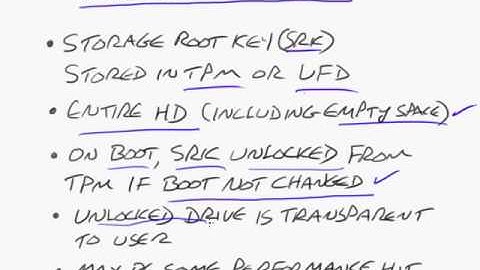 • STORAGE ROOT KEY (SRK)
STORED IN TPM OR UFD
• ENTIRE HD (INCLUDING EMPTY SPACE) ✓
• ON BOOT, SRK UNLOCKED FROM
TPM IF BOOT NOT CHANGED ✓
• UNLOCKED DRIVE IS TRANSPARENT
TO USER
• MAY BE SOME PERFORMANCE HIT